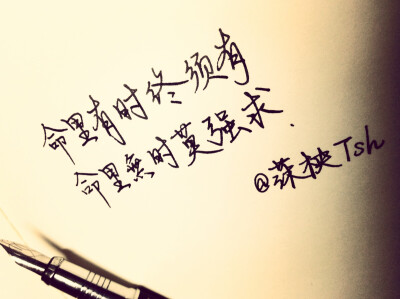 命里有时终须有
命里無时莫强求.
@蔡秧Tsh